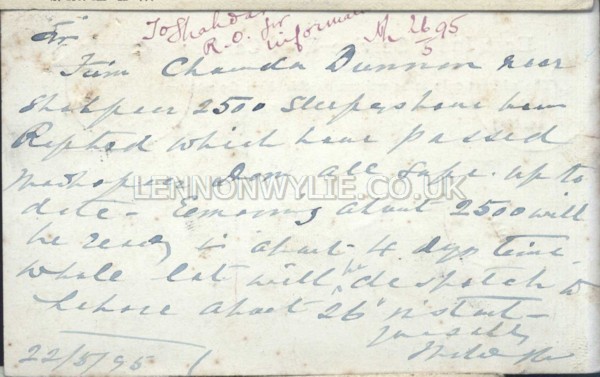 To Shahda
R.O. for
information 26/5 95
Sir
From Chanda Dunnon near
Shahpur 2500 Sleepers have been
Rafted which have passed
all safe up to
date - Remaining about 2500 will
be ready in about 4 days time
whole lot will be despatch to
Lahore about 26th instant -
LENNONWYLIE.CO.UK
22/5/95